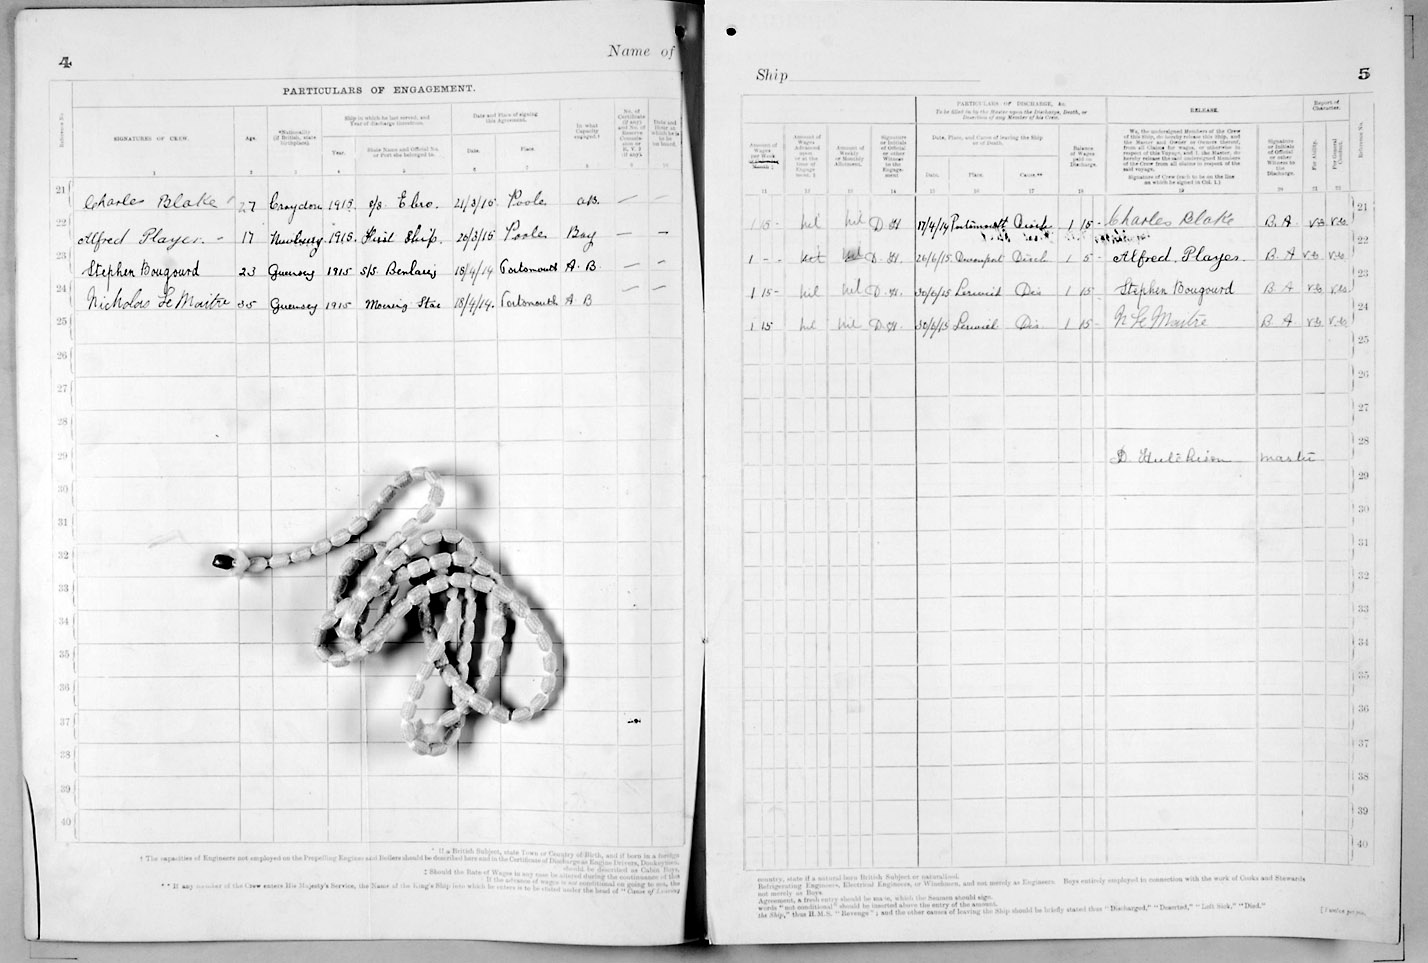 4
Name of
PARTICULARS OF ENGAGEMENT.
Reference No.
SIGNATURES OF CREW.
Age.
*Nationality (if British, state birthplace).
Ship in which he last served, and Year of discharge therefrom.
Year.
State Name and Official No. or Port she belonged to.
Date and Place of signing this Agreement.
Date.
Place.
In what Capacity engaged.†
21 Charles Blake 27 Croydon 1915 s/s Ebro. 21/3/15 Poole a.B. — —
22 Alfred Player. - 17 1915. First Ship. Poole Boy — —
23 Stephen Bougourd 23 Guernsey 1915 S/S 18/4/14 Portsmouth A.B. — —
24 Nicholas Le Maitre 35 Guernsey 1915 18/4/14. Portsmouth A B — —
25
26
27
28
29
30
31
32
33
34
35
36
37
38
39
40
* If a British Subject, state Town or Country of Birth, and if born in a foreign
† The capacities of Engineers not employed on the Propelling Engines and Boilers should be described here and in the Certificate of Discharge as Engine Drivers, Donkeymen,
should be described as Cabin Boys.
‡ Should the Rate of Wages in any case be altered during the continuance of this
If the advance of wages is not conditional on going to sea, the
** If any member of the Crew enters His Majesty's Service, the Name of the King's Ship into which he enters is to be stated under the head of "Cause of leaving
Ship
5
PARTICULARS OF DISCHARGE, &c.
To be filled in by the Master upon the Discharge, Death, or Desertion of any Member of his Crew.
RELEASE.
Report of Character.
Date, Place, and Cause of leaving the Ship or of Death.
Date.
Place.
Cause.**
Balance of Wages paid on Discharge.
We, the undersigned Members of the Crew of this Ship, do hereby release this Ship, and the Master and Owner or Owners thereof, from all Claims for Wages, or otherwise in respect of this Voyage, and I, the Master, do hereby release the said undersigned Members of the Crew from all claims in respect of the said voyage.
Signature of Crew (each to be on the line on which he signed in Col. 1.)
Signature or Initials of Official or other Witness to the Discharge.
For Ability.
For General Conduct.
Reference No.
1 15 - nil nil D H 17/4/14 Portsmouth 1 15 - Charles Blake B. A. VG VG 21
1 - - nil D. H. Devonport Disch 1 5 - Alfred. Player. B. A VG VG 22
1 15 - nil nil D. H. 30/6/15 Lerwick Dis 1 15 Stephen Bougourd B A VG VG 23
1 15 nil nil D H 30/6/15 Lerwick Dis. 1 15 - N Le Maitre B A VG VG 24
25
26
27
28
D. Hutchison master
29
30
31
32
33
34
35
36
37
38
39
40
country, state if a natural born British Subject or naturalised.
Refrigerating Engineers, Electrical Engineers, or Winchmen, and not merely as Engineers. Boys entirely employed in connection with the work of Cooks and Stewards
not merely as Boys.
Agreement, a fresh entry should be made, which the Seamen should sign.
words "not conditional" should be inserted above the entry of the amount.
the Ship," thus H.M.S. "Revenge"; and the other causes of leaving the Ship should be briefly stated thus "Discharged," "Deserted," "Left Sick," "Died."